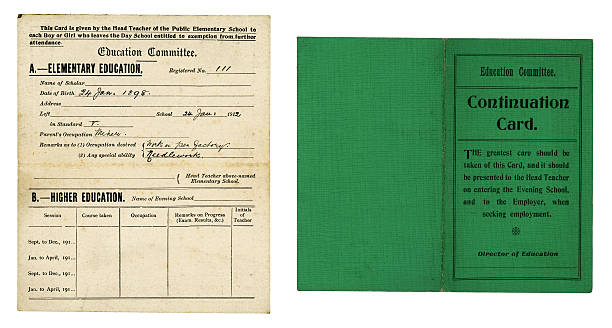 This Card is given by the Head Teacher of the Public Elementary School to
each Boy or Girl who leaves the Day School entitled to exemption from further
attendance.
Education Committee.
A.—ELEMENTARY EDUCATION,
Registered No. 111
Name of Scholar
Date of Birth 24 Jan. 1898.
Address
Left School 24 Jan: 1912
in Standard V.
Parent's Occupation Miner.
Remarks as to (1) Occupation desired Work in Factory.
(2) Any special ability Needlework.
Head Teacher above-named
Elementary School.
B.—HIGHER EDUCATION.
Name of Evening School
Session Course taken Occupation Remarks on Progress (Exam. Results, &c.) Initials of Teacher
Sept. to Dec., 191...
Jan. to April, 191...
Sept. to Dec., 191...
Jan. to April, 191...
Education Committee.
Continuation
Card.
THE greatest care should be
taken of this Card, and it should
be presented to the Head Teacher
on entering the Evening School,
and to the Employer, when
seeking employment.
Director of Education